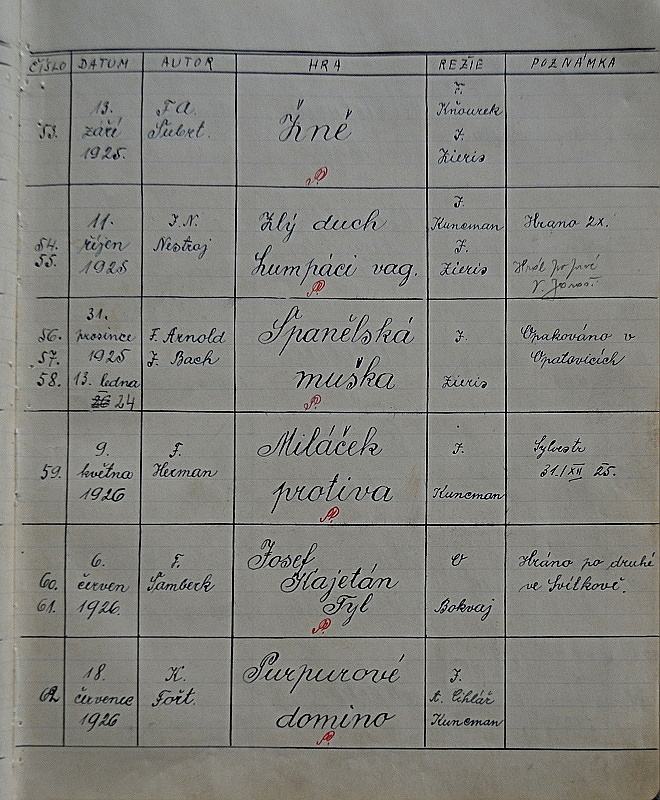 ČÍSLO DATUM AUTOR HRA REŽIE POZNÁMKA
53.
13.
září
1925.
F. A.
Šubrt.
Žně
F.
Kňourek
J.
Zieris
54.
55.
11.
říjen
1925
J. N.
Nestroj
Zlý duch
Lumpáci vag.
J.
Kuncman
J.
Zieris
Hrano 2x.
Hrál po prvé
V.
56.
57.
58.
31.
prosince
1925
13. ledna
24
F. Arnold
J. Bach
Španělská
muška
J.
Zieris
Opakováno v
Opatovicích
59.
9.
května
1926
F.
Herman
Miláček
protiva
J.
Kuncman
Sylvestr
31./XII 25.
60.
61.
6.
červen
1926.
F.
Šamberk
Josef
Kajetán
Tyl
O
Bokvaj
Hráno po druhé
ve Svítkově.
62
18.
červenec
1926
K.
Fořt.
Purpurové
domino
J.
A. Cihlář
Kuncman